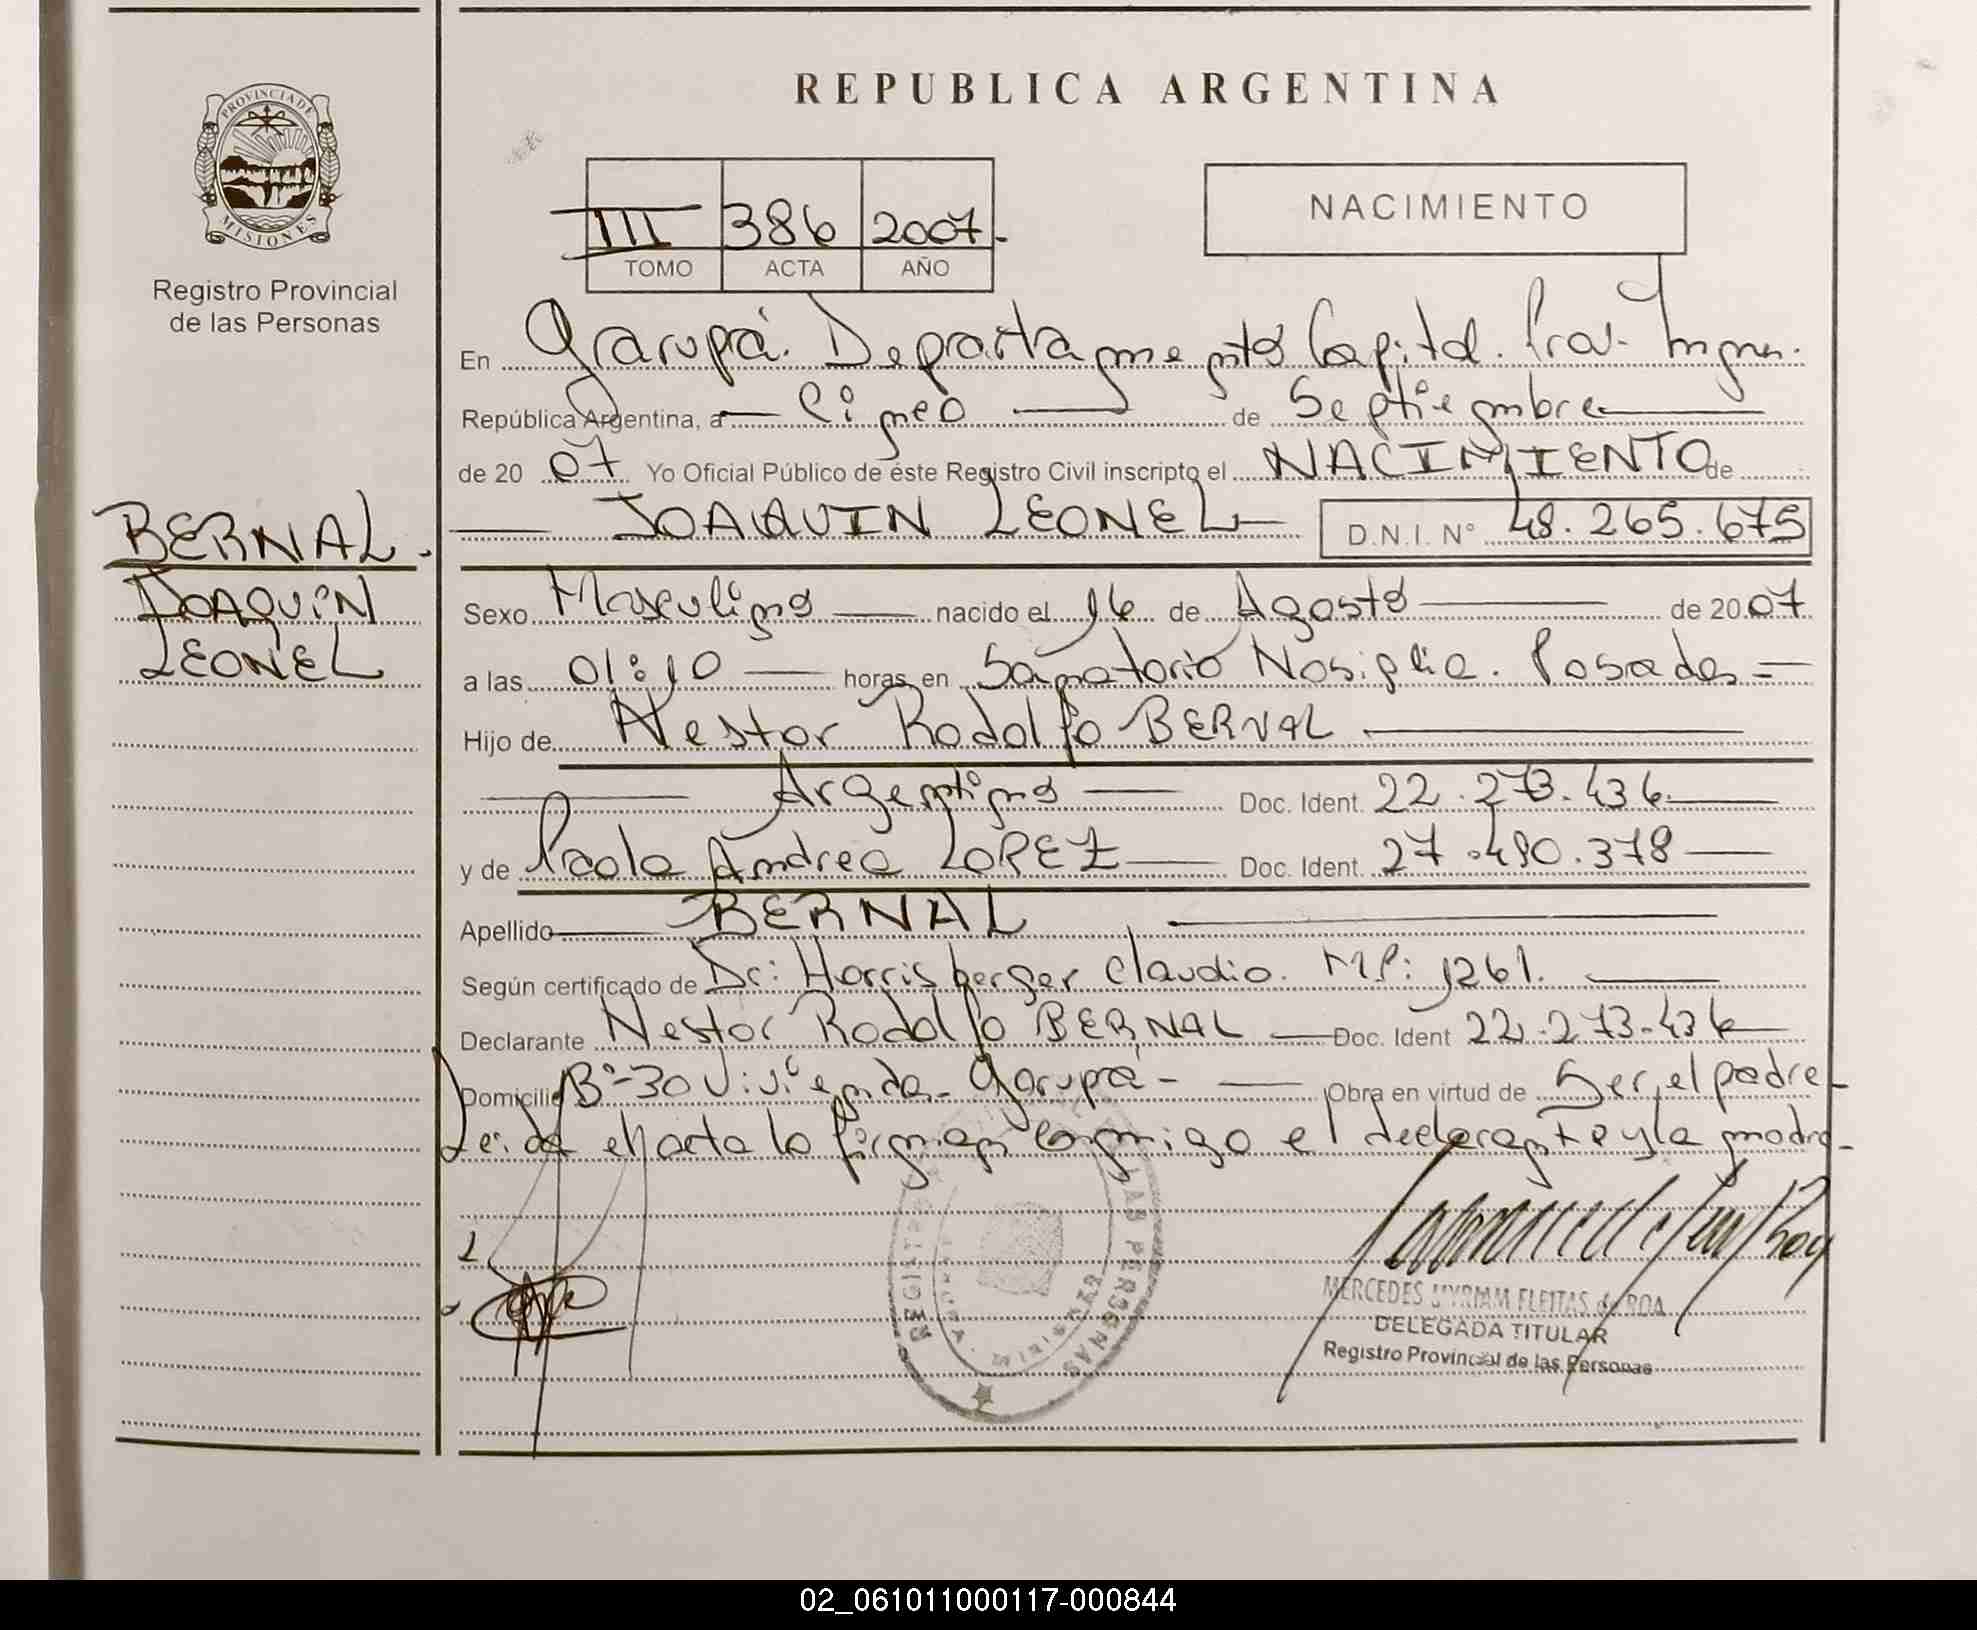 REPUBLICA ARGENTINA
PROVINCIA DE
MISIONES
Registro Provincial
de las Personas
III 386 2007.
TOMO ACTA AÑO
NACIMIENTO
En Garupá. Departamento Capital. Prov. Mnes.
República Argentina, a Cinco de Septiembre
de 20 07 Yo Oficial Público de éste Registro Civil inscripto el NACIMIENTO de
JOAQUIN LEONEL D.N.I. N° 48.265.675
BERNAL.
JOAQUIN
LEONEL
Sexo Masculino nacido el 16 de Agosto de 2007
a las 01:10 horas en Sanatorio Nosiglia. Posadas =
Hijo de Nestor Rodolfo BERNAL
Argentino Doc. Ident. 22.273.436
y de Paola Andrea LOPEZ Doc. Ident. 27.490.378
Apellido BERNAL
Según certificado de Dr: Horrisberger Claudio. M.P: 1261.
Declarante Nestor Rodolfo BERNAL Doc. Ident 22.273.436
Domicilio B°-30 Vivienda. Garupá - Obra en virtud de Ser el padre-
Leída el acta lo firman conmigo el declarante y la madre-
REGISTRO LAS PERSONAS
MERCEDES MYRIAM FLEITAS de ROA
DELEGADA TITULAR
Registro Provincial de las Personas
02_061011000117-000844